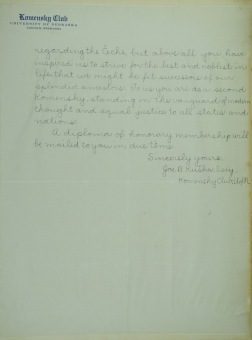 Komensky Club
UNIVERSITY OF NEBRASKA
LINCOLN, NEBRASKA
regarding the Čechs, but above all you have
inspired us to strive for the best and noblest in
life, that we might be fit successors of our
splendid ancestors. To us you are as a second
Komensky, standing in the vanguard of modern
thought and equal justice to all states and
nations.
A diploma of honorary membership will
be mailed to you in due time.
Sincerely yours,
Joe B.
Komensky Club